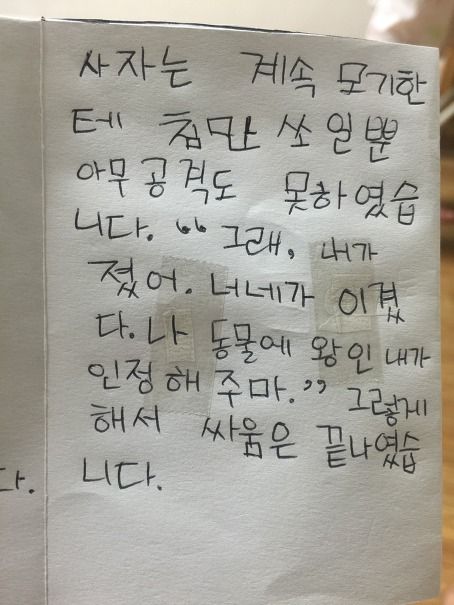 사자는 계속 모기한
테 침만 쏘일뿐
아무공격도 못하였습
니다. “그래, 내가
졌어. 너네가 이겼
다. 나 동물에 왕인 내가
인정해 주마.” 그렇게
해서 싸움은 끝나였습
니다.
다.